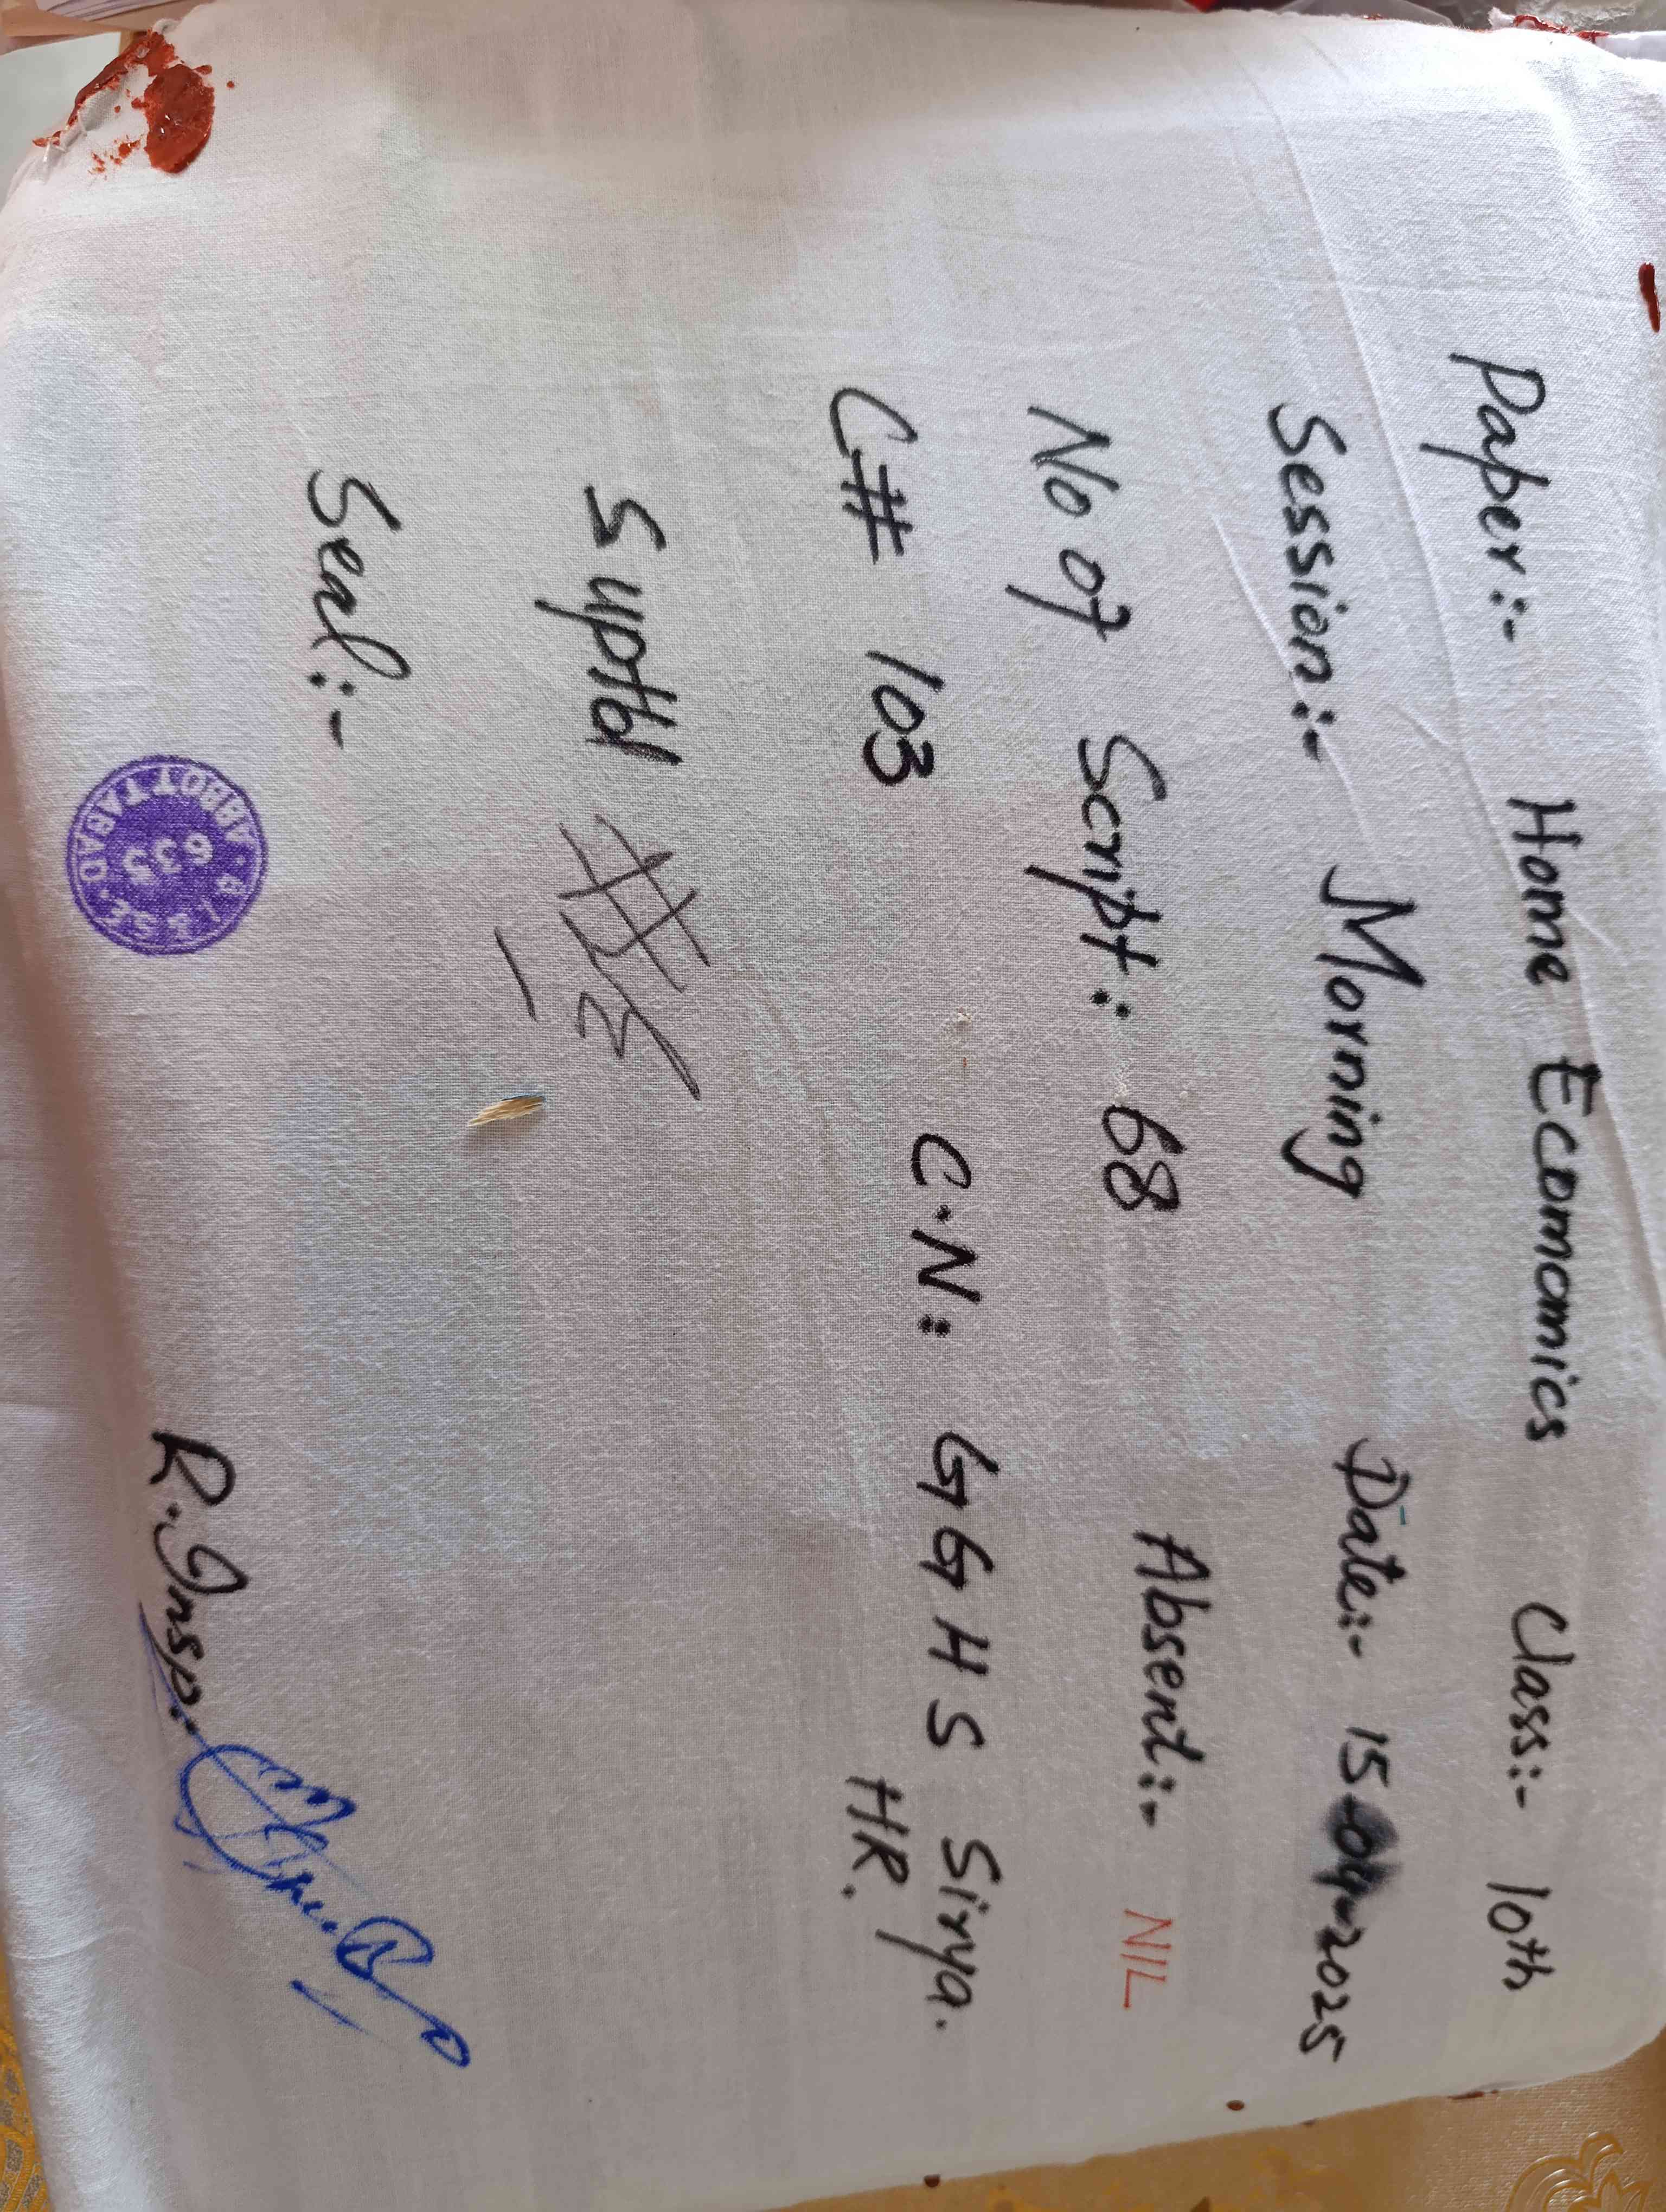 Paper:- Home Economics Class:- 10th
Session:- Morning Date:- 15-04-2025
No of Script: 68 Absent:- NIL
C# 103 C.N: GGHS Sirya.
HR.
Suptt
Seal:-
B.I.S.E. ABBOTTABAD.
635
R.Insp:-